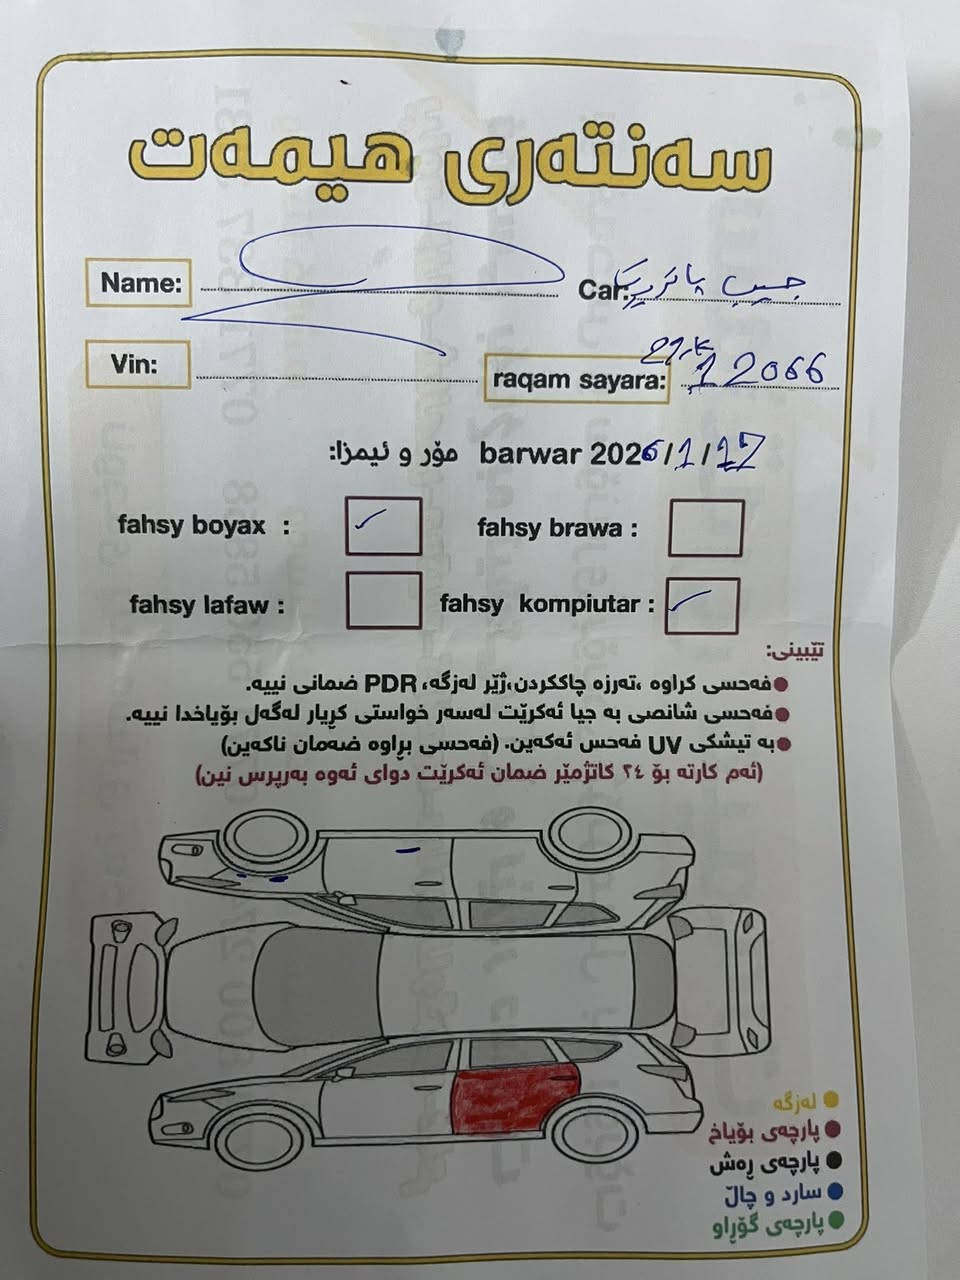 سەنتەری هیمەت
Name:
Car: جیب پاتریت
Vin:
raqam sayara: 12066
مۆر و ئیمزا: barwar 2026/1/17
fahsy boyax :
fahsy brawa :
fahsy lafaw :
fahsy kompiutar :
تێبینی:
●فەحسی کراوە ،تەرزە چاککردن،ژێر لەزگە، PDR ضمانی نییە.
●فەحسی شانصی بە جیا ئەکرێت لەسەر خواستی کڕیار لەگەل بۆیاخدا نییە.
●بە تیشکی UV فەحس ئەکەین. (فەحسی براوە ضەمان ناکەین)
(ئەم کارتە بۆ ٢٤ کاتژمێر ضمان ئەکرێت دوای ئەوە بەرپرس نین)
● لەزگە
● پارچەی بۆیاخ
● پارچەی ڕەش
● سارد و چاڵ
● پارچەی گۆڕاو